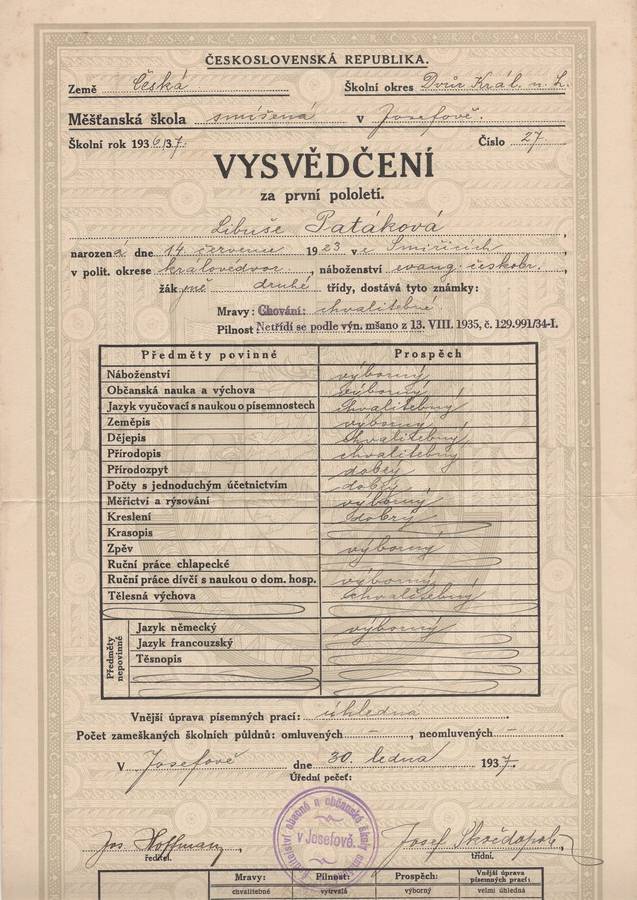 ČESKOSLOVENSKÁ REPUBLIKA.
Země Česká Školní okres Dvůr Král. n. L.
Měšťanská škola smíšená v Josefově.
Školní rok 1936/37. Číslo 27
VYSVĚDČENÍ
za první pololetí.
Libuše Patáková,
narozená dne 14. července 1923 ve Smiřicích,
v polit. okrese královédvor., náboženství evang. českobr.,
žákyně druhé třídy, dostává tyto známky:
Mravy: Chování: chvalitebné
Pilnost: Netřídí se podle výn. mšano z 13. VIII. 1935, č. 129.991/34-I.
Předměty povinné Prospěch
Náboženství výborný
Občanská nauka a výchova výborný
Jazyk vyučovací s naukou o písemnostech chvalitebný
Zeměpis výborný
Dějepis chvalitebný
Přírodopis chvalitebný
Přírodozpyt dobrý
Počty s jednoduchým účetnictvím dobrý
Měřictví a rýsování výborný
Kreslení dobrý
Krasopis
Zpěv výborný
Ruční práce chlapecké
Ruční práce dívčí s naukou o dom. hosp. výborný
Tělesná výchova chvalitebný
Předměty nepovinné
Jazyk německý výborný
Jazyk francouzský
Těsnopis
Vnější úprava písemných prací: úhledná
Počet zameškaných školních půldnů: omluvených -, neomluvených -
V Josefově dne 30. ledna 1937.
Úřední pečeť:
v Josefově.
Jos. Hoffmann, Josef
ředitel. třídní.
Mravy: Pilnost: Prospěch: Vnější úprava písemných prací:
chvalitebné vytrvalá výborný velmi úhledná